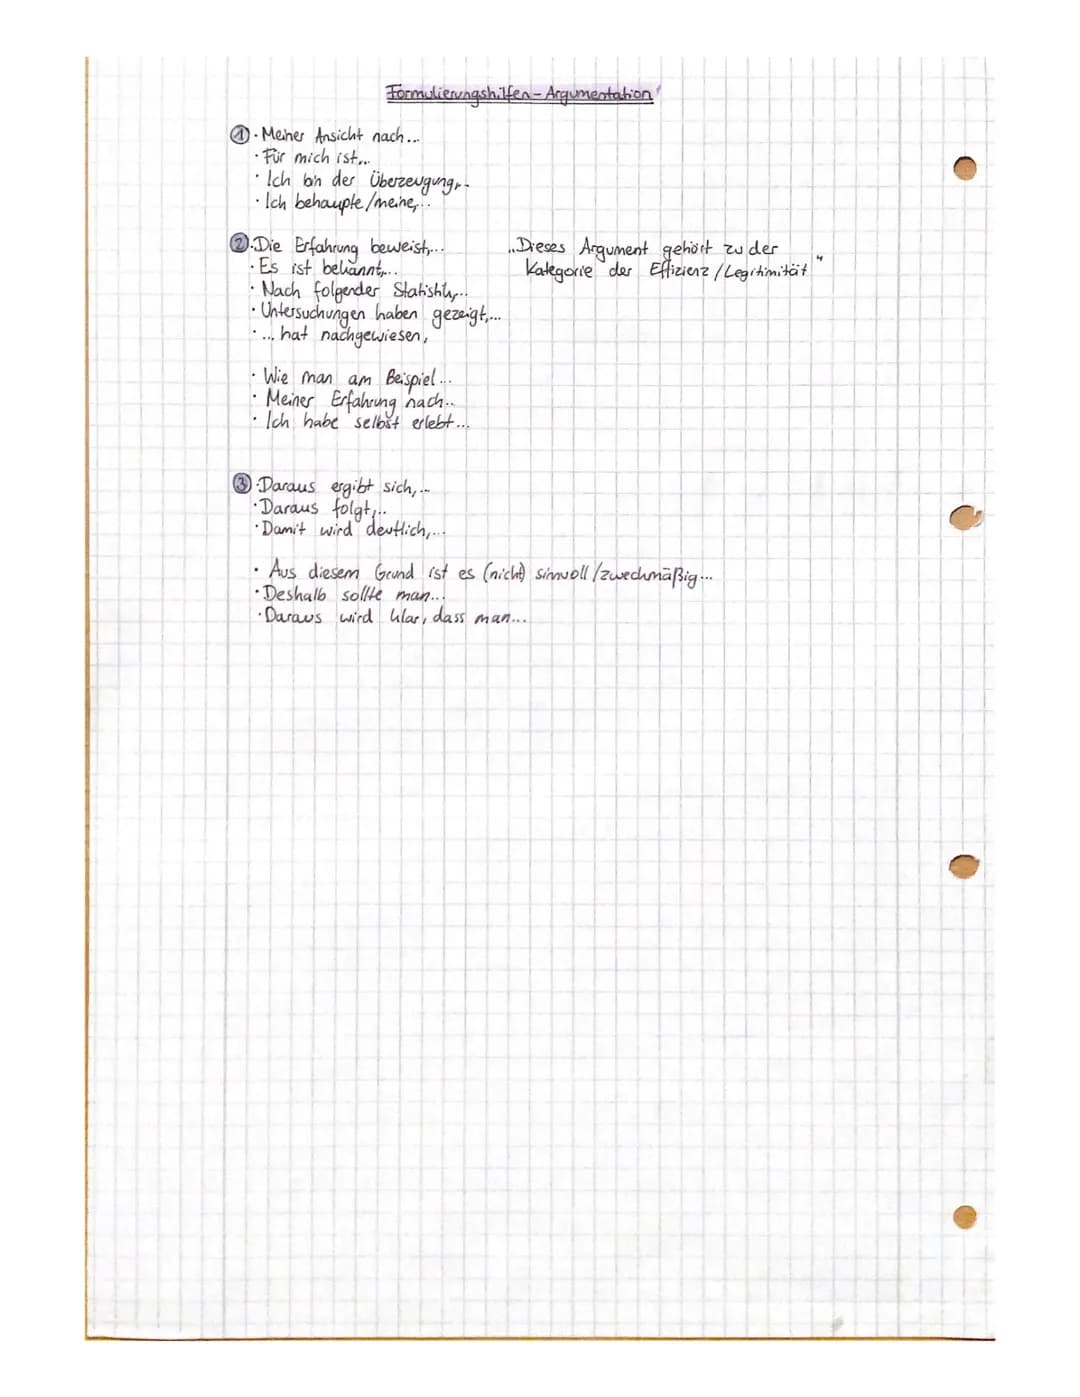 Formulierungshilfen - Argumentation
① · Meiner Ansicht nach...
· Für mich ist,..
· Ich bin der Überzeugung,..
· Ich behaupte/meine,..
② · Die Erfahrung beweist,...
· Es ist bekannt,...
· Nach folgender Statistik,..
· Untersuchungen haben gezeigt,...
· ... hat nachgewiesen,
„Dieses Argument gehört zu der
Kategorie der Effizienz/Legitimität“
· Wie man am Beispiel...
· Meiner Erfahrung nach..
· Ich habe selbst erlebt...
③ · Daraus ergibt sich,...
· Daraus folgt,..
· Damit wird deutlich,...
· Aus diesem Grund ist es (nicht) sinnvoll/zweckmäßig...
· Deshalb sollte man...
· Daraus wird klar, dass man...